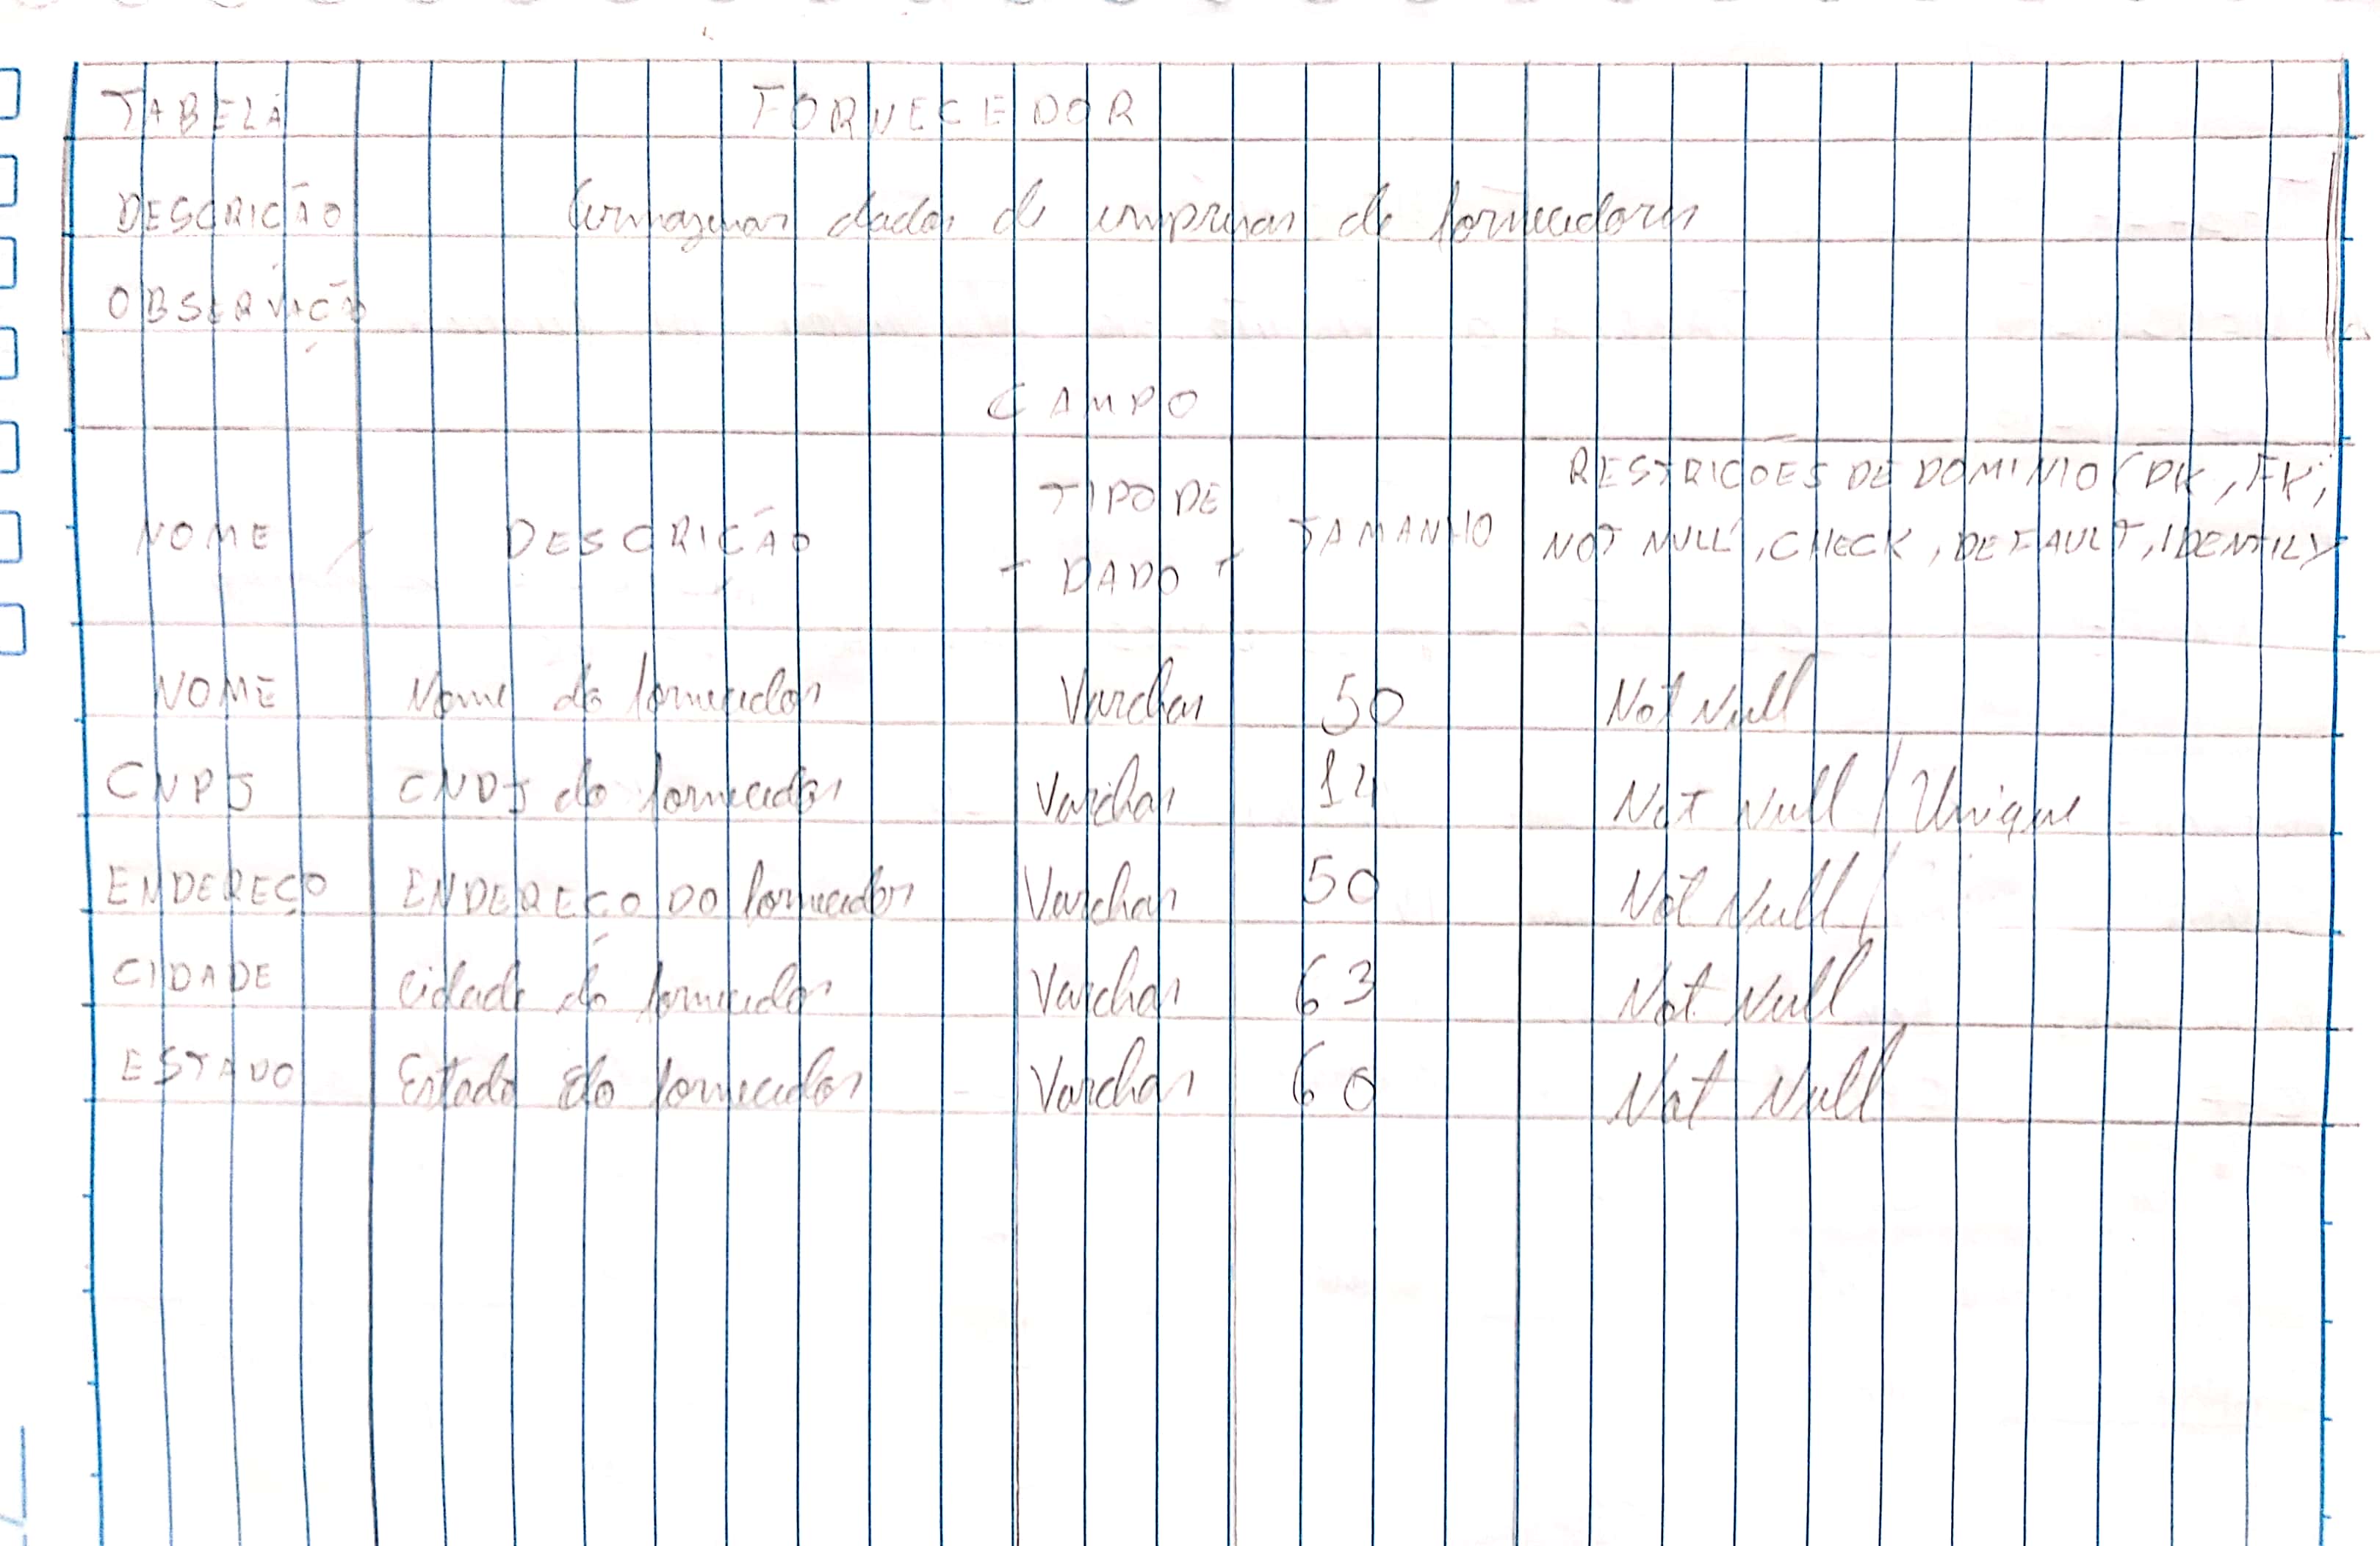 TABELA FORNECEDOR
DESCRIÇÃO Armazenar dados de empresas de fornecedores
OBSERVAÇÃO
CAMPO
NOME DESCRIÇÃO TIPO DE DADO TAMANHO RESTRIÇOES DE DOMINIO (PK, FK,
NOT NULL, CHECK, DEFAULT, IDENTILY
NOME Nome do fornecedor Varchar 50 Not Null
CNPJ CNPJ do fornecedor Varchar 14 Not Null / Unique
ENDEREÇO ENDEREÇO DO fornecedor Varchar 50 Not Null /
CIDADE Cidade do fornecedor Varchar 63 Not Null
ESTADO Estado do fornecedor Varchar 60 Not Null